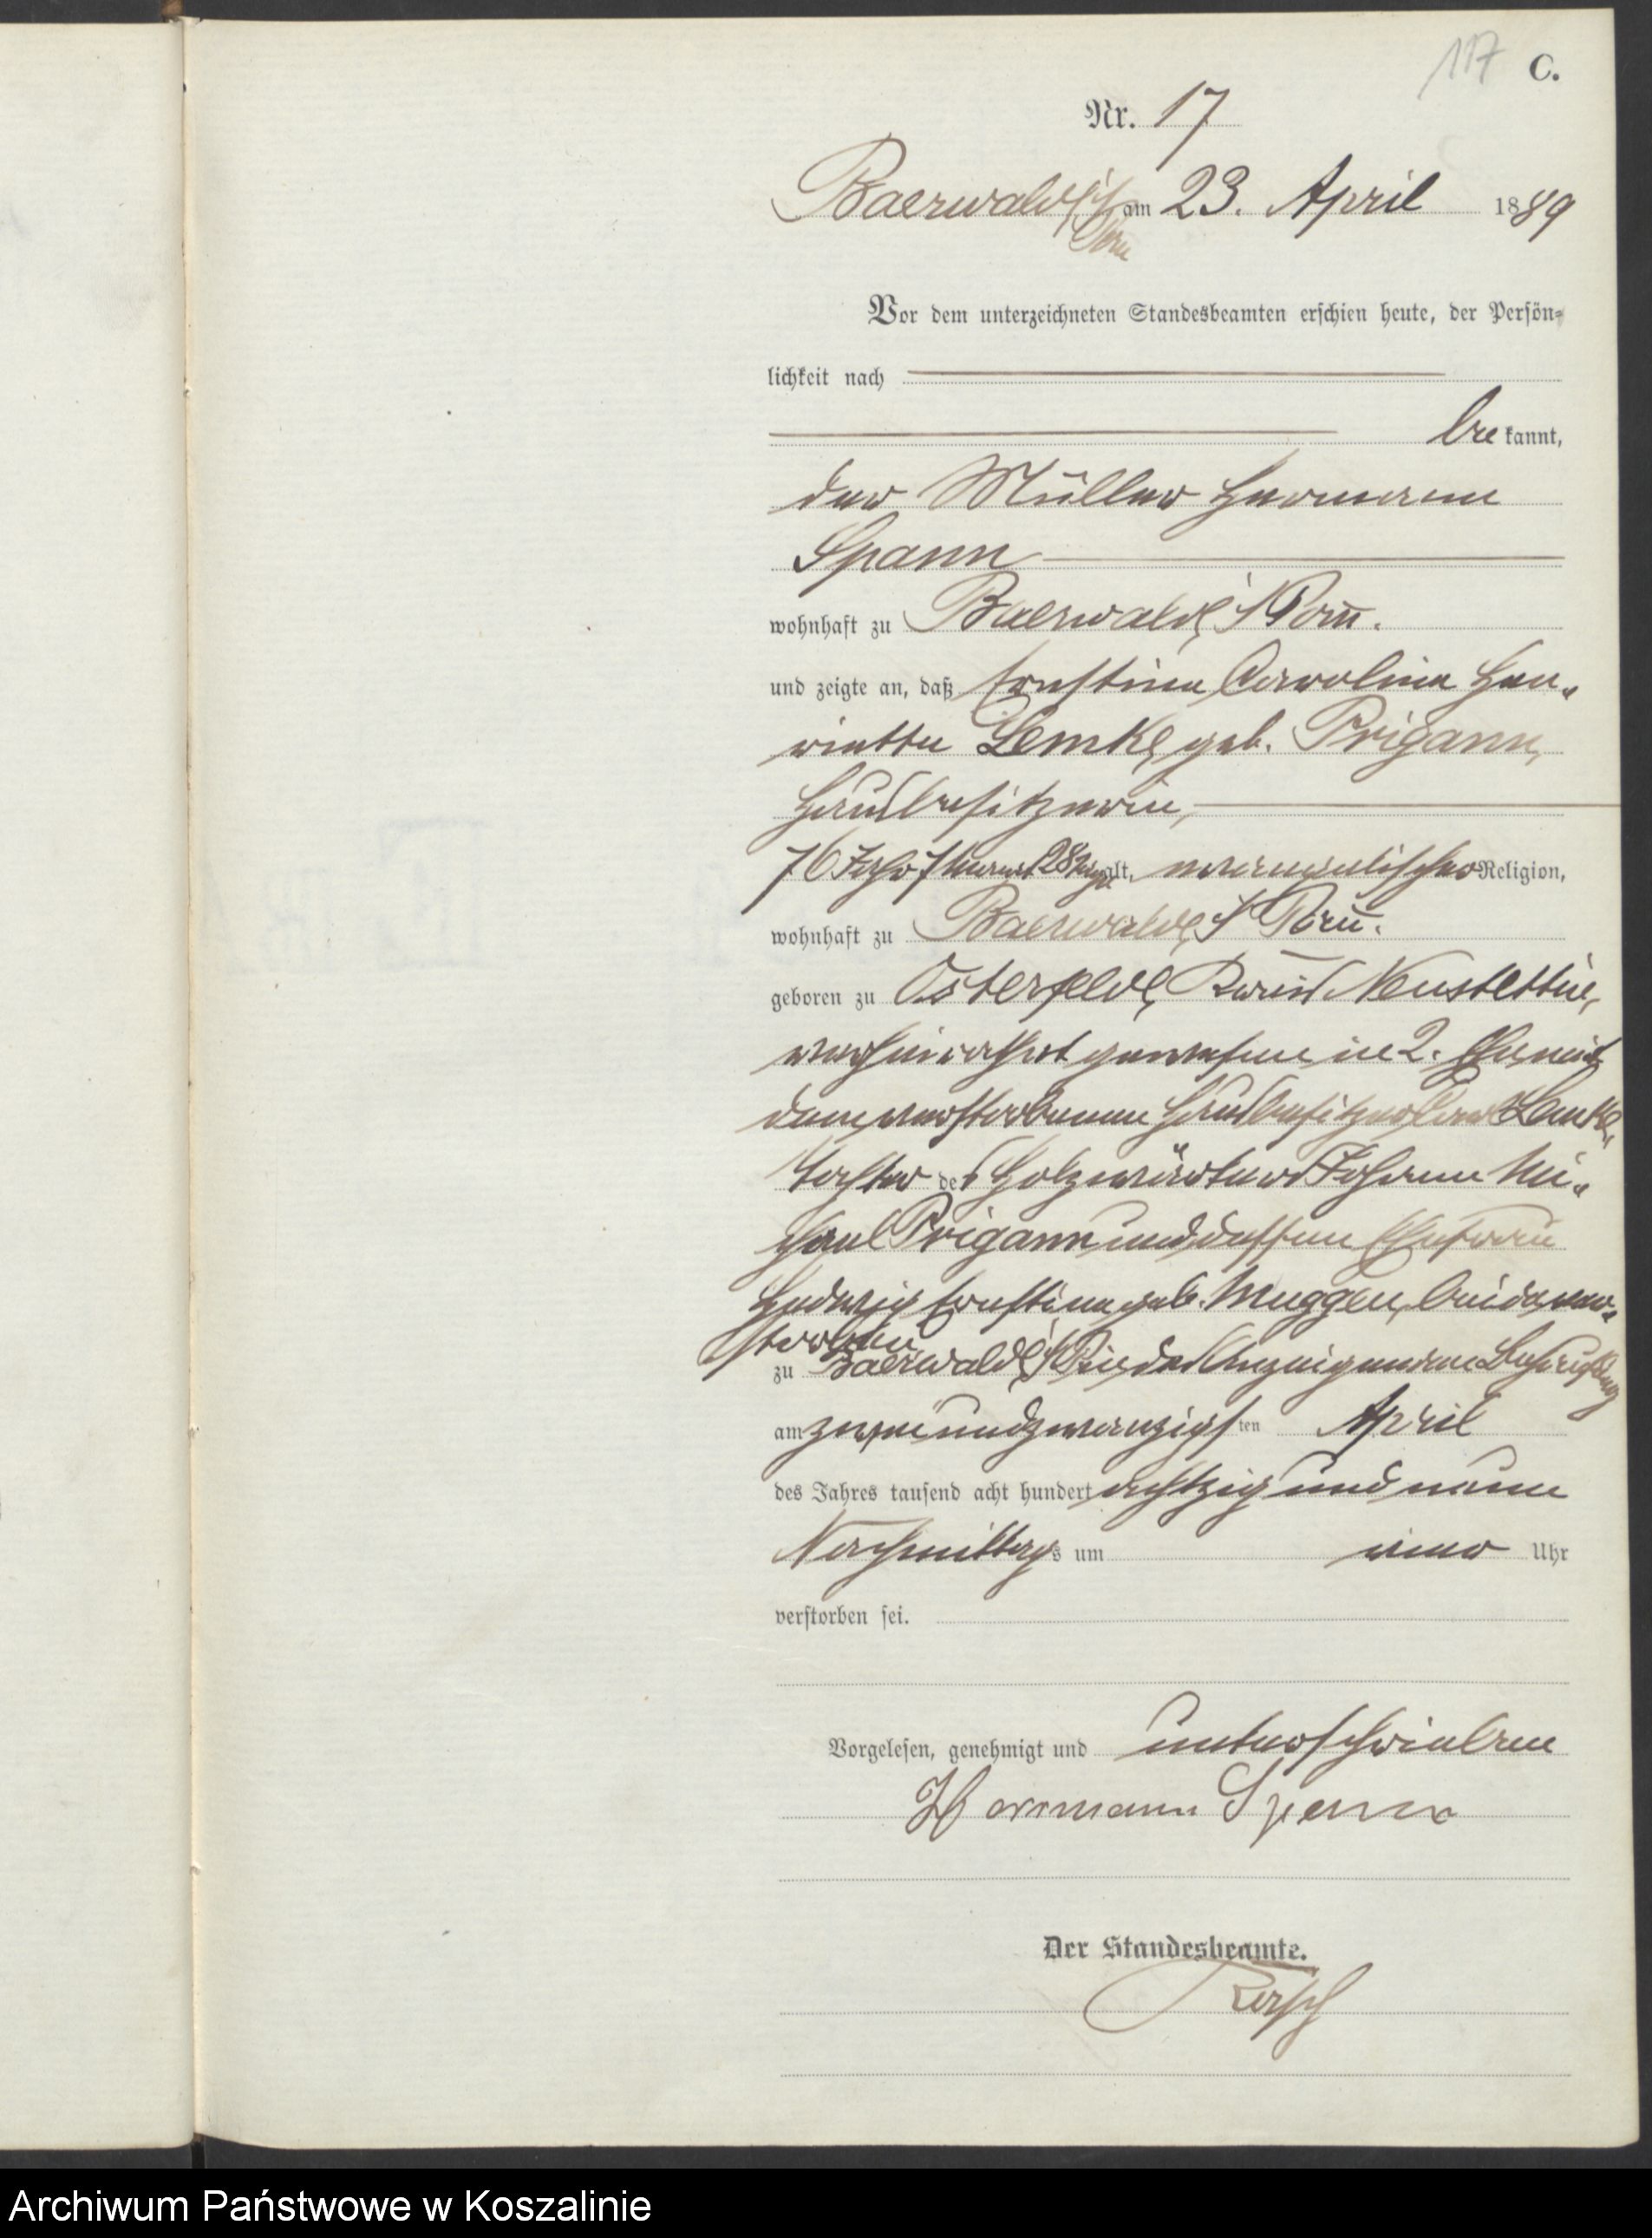 117 C.
Nr. 17
Baerwalde i/ Pom am 23. April 1889
Vor dem unterzeichneten Standesbeamten erschien heute, der Persön=
lichkeit nach
be kannt,
der Müller Hermann
Spann
wohnhaft zu Baerwalde i/ Pom̄.
und zeigte an, daß Ernstine Caroline Hen=
riette Lemke, geb. Prigann,
Hausbesitzerin,
76 Jahr 7 Monat 28 Tage alt, evangelischer Religion,
wohnhaft zu Baerwalde i/ Pom̄.
geboren zu Osterfelde, Kreis Neustettin,
verheirathet gewesen in 2. Ehe mit
dem verstorbenen Hausbesitzer Lemke,
Tochter des Holzwärters Johann Mi=
chael Prigann und dessen Ehefrau
Hedwig Ernstine geb. Muggen, beide ver=
storben
zu Baerwalde i/ P in des Anzeigenden Behausung
am zweiundzwanzigsten April
des Jahres tausend acht hundert achtzig und neun
Nachmittags um einer Uhr
verstorben sei.
Vorgelesen, genehmigt und unterschrieben
Hermann Spann
Der Standesbeamte.
Archiwum Państwowe w Koszalinie